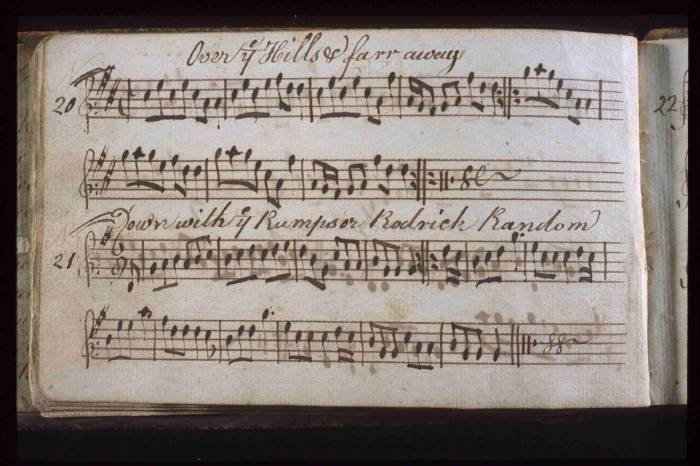 Over yͤ Hills & farr away
20
22
Down with yͤ Rumps or Rodrick Random
21